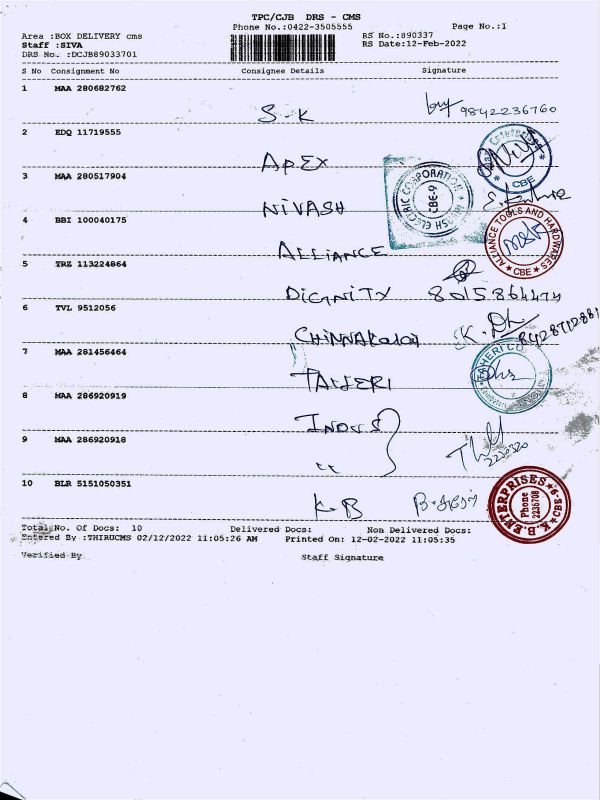 TPC/CJB DRS - CMS
Phone No.:0422-3505555 Page No.:1
Area :BOX DELIVERY cms RS No :890337
Staff :SIVA RS Date:12-Feb-2022
DRS No. :DCJB89033701
S No Consignment No Consignee Details Signature
1 MAA 280682762
S.K 9842236760
2 EDQ 11719555
APEX
CBE
3 MAA 280517904
ELECTRIC CORPORATION
CBE-9
NIVASH
4 BBI 100040175
ALLIANCE TOOLS AND HARDWARES
CBE
ALLIANCE
5 TRZ 113224864
DIGNITY 8015864474
6 TVL 9512056
K.
7 MAA 281456464
TAHERI
8 MAA 286920919
INDUS
9 MAA 286920918
"
10 BLR 5151050351
K.B.ENTERPRISES
CBE-9
Phone
2235708
K.B B.
Total No. Of Docs: 10 Delivered Docs: Non Delivered Docs:
Entered By :THIRUCMS 02/12/2022 11:05:26 AM Printed On: 12-02-2022 11:05:35
Verified By Staff Signature